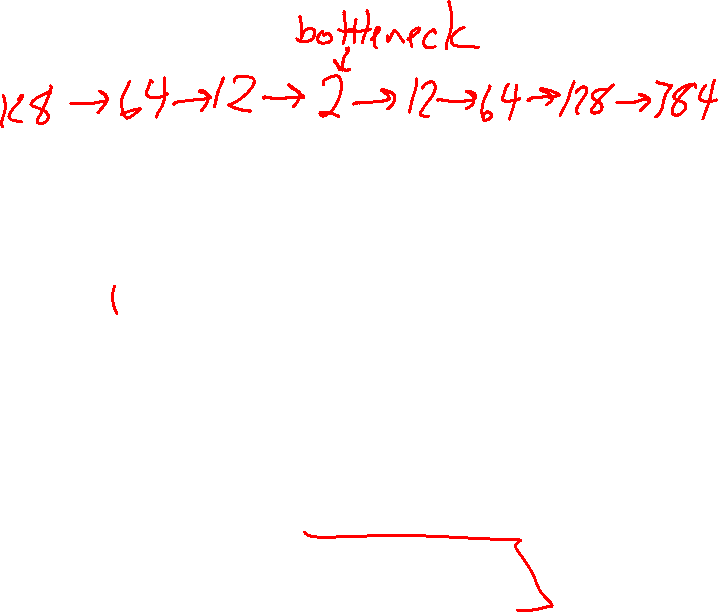 bottleneck
128 → 64 → 12 → 2 → 12 → 64 → 128 → 784